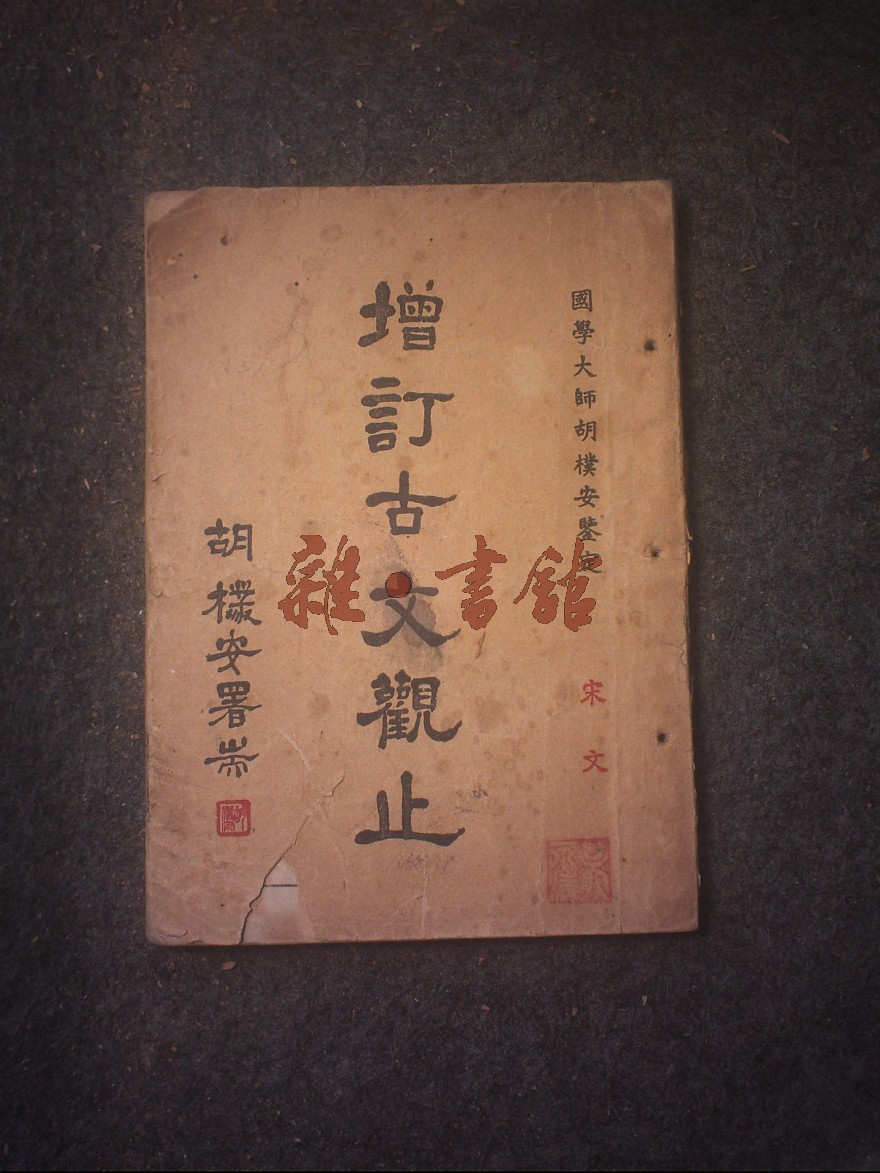 國學大師胡樸安鑒定
宋文
增訂古文觀止
胡樸安署耑
雜·書館